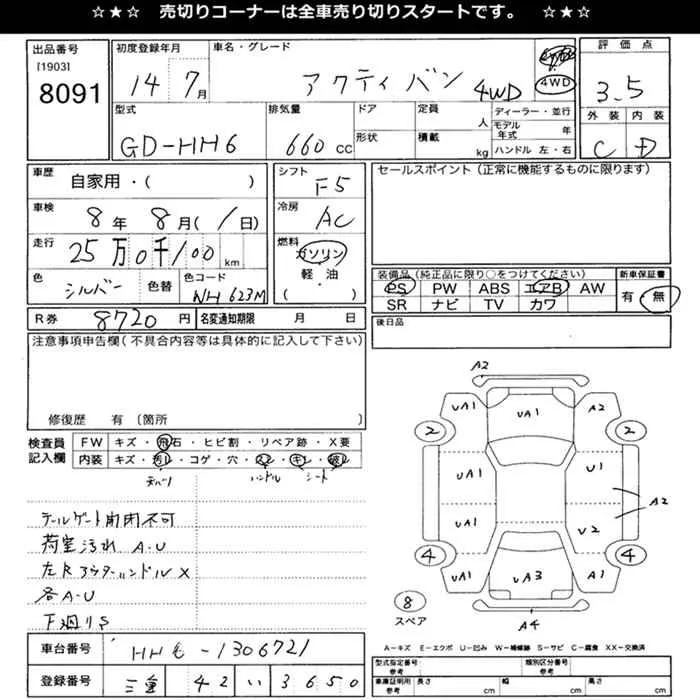 ☆★☆ 売切りコーナーは全車売り切りスタートです。 ☆★☆
出品番号 初度登録年月 車名・グレード 評価点
[1903]
8091
14 7月 アクティバン 4WD 4WD 3.5
型式 排気量 ドア 定員 人 ディーラー・並行 外装 内装
モデル年式 年
GD-HH6 660cc 形状 積載 kg ハンドル 左・右 C D
車歴 自家用・( ) シフト F5 セールスポイント(正常に機能するものに限ります)
車検 8年 8月(/日) 冷房 AC
走行 25万0千100km 燃料 ガソリン
軽・油
( )
色 シルバー 色替 色コード NH623M
装備品(純正品に限り○をつけてください) 新車保証書
PS PW ABS エアB AW 有・無
SR ナビ TV カワ
R券 8720円 名変通知期限 月 日 後日品
注意事項申告欄(不具合内容等は具体的に記入して下さい)
修復歴 有〔箇所 〕
検査員記入欄 FW キズ・飛石・ヒビ割・リペア跡・X要
内装 キズ・汚れ・コゲ・穴・スレ・キレ・破れ
ハンドル シート
テールゲート開閉不可
荷室汚れ A.U
左Rアウターハンドル X
各A-U
下廻りS
A2
UA1 UA1 A2
2 2
UA1 U1
A2
UA1 U2
4 4
UA1 UA3 A1
8 A4
スペア
A-キズ E-エクボ U-凹み W-補修跡 S-サビ C-腐食 XX-交換済
車台番号 HH6-1306721
登録番号 三重 42 い 3650
型式指定番号 参考 類別区分番号 参考
車庫証明用 参考 長さ cm 幅 cm 高さ cm